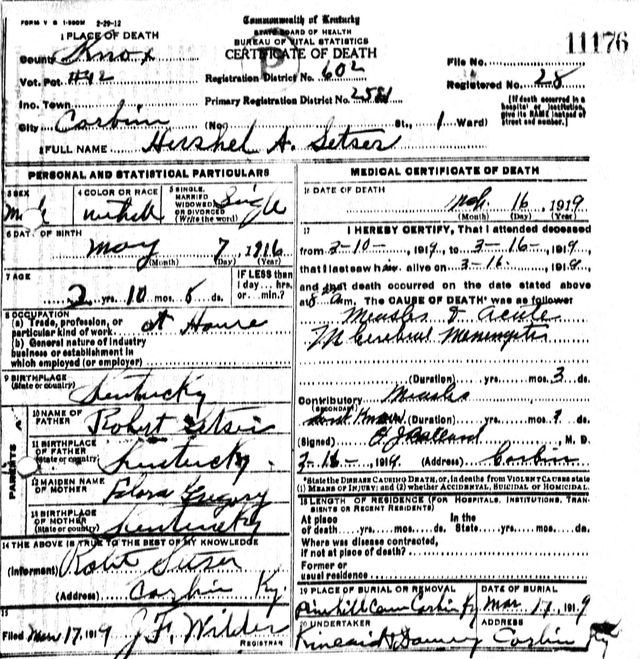 FORM V S 1-500M 2-29-12
Commonwealth of Kentucky
STATE BOARD OF HEALTH
BUREAU OF VITAL STATISTICS
CERTIFICATE OF DEATH
11176
1 PLACE OF DEATH
County Knox
Vot. Pct. #42
Registration District No. 602
File No.
Inc. Town
Primary Registration District No. 2581
Registered No. 28
City Corbin (No. St., 1 Ward)
(If death occurred in a hospital or institution, give its NAME instead of street and number.)
2 FULL NAME Hershel A. Setser
PERSONAL AND STATISTICAL PARTICULARS
3 SEX
4 COLOR OR RACE
5 SINGLE, MARRIED WIDOWED OR DIVORCED (Write the word) Single
6 DATE OF BIRTH
May 7, 1916
(Month) (Day) (Year)
7 AGE
2 yrs. 10 mos.
IF LESS than 1 day... hrs. or min.?
8 OCCUPATION
(a) Trade, profession, or particular kind of work at Home
(b) General nature of industry business or establishment in which employed (or employer)
9 BIRTHPLACE (State or country) Kentucky
PARENTS
10 NAME OF FATHER Robert Setser
11 BIRTHPLACE OF FATHER (State or country) Kentucky
12 MAIDEN NAME OF MOTHER Flora Gregory
13 BIRTHPLACE OF MOTHER (State or country) Kentucky
14 THE ABOVE IS TRUE TO THE BEST OF MY KNOWLEDGE
(Informant) Robt Setser
(Address) Corbin Ky
15
Filed Mar 17, 1919 J. F. Wilder
REGISTRAR
MEDICAL CERTIFICATE OF DEATH
16 DATE OF DEATH
16, 1919
(Month) (Day) (Year)
17 I HEREBY CERTIFY, That I attended deceased
from 3-10-, 1919, to 3-16-, 1919,
that I last saw him alive on 3-16., 1919,
and that death occurred on the date stated above
at 8 am. The CAUSE OF DEATH* was as follows:
Measles & acute
Cerebral Meningitis
(Duration) yrs. mos. 3 ds.
Contributory Measles
(SECONDARY)
(Duration) yrs. mos. ds.
(Signed) Ballard, M. D.
3-16-, 1919 (Address) Corbin
*State the DISEASE CAUSING DEATH, or, in deaths from VIOLENT CAUSES state (1) MEANS OF INJURY; and (2) whether ACCIDENTAL, SUICIDAL OR HOMICIDAL.
18 LENGTH OF RESIDENCE (FOR HOSPITALS, INSTITUTIONS, TRANSIENTS OR RECENT RESIDENTS)
At place of death yrs. mos. ds. In the State yrs. mos. ds.
Where was disease contracted, if not at place of death?
Former or usual residence
19 PLACE OF BURIAL OR REMOVAL
Pinehill Cem Corbin Ky
DATE OF BURIAL
Mar 17, 1919
20 UNDERTAKER
ADDRESS
Corbin Ky